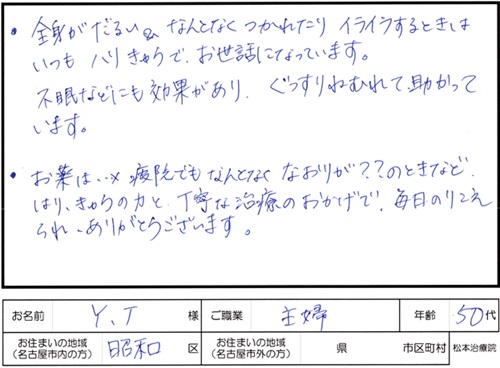 ・全身がだるい、なんとなくつかれたり イライラするときは
いつも ハリきゅうで、お世話になっています。
不眠などにも効果があり、ぐっすりねむれて助かって
います。
・お薬は…× 病院でもなんとなく なおりが??のときなど
はり、きゅうの力と、丁寧な治療のおかげで、毎日のりこえ
られ、ありがとうございます。
お名前 Y.T 様 ご職業 主婦 年齢 50代
お住まいの地域(名古屋市内の方) 昭和 区 お住まいの地域(名古屋市外の方) 県 市区町村 松本治療院